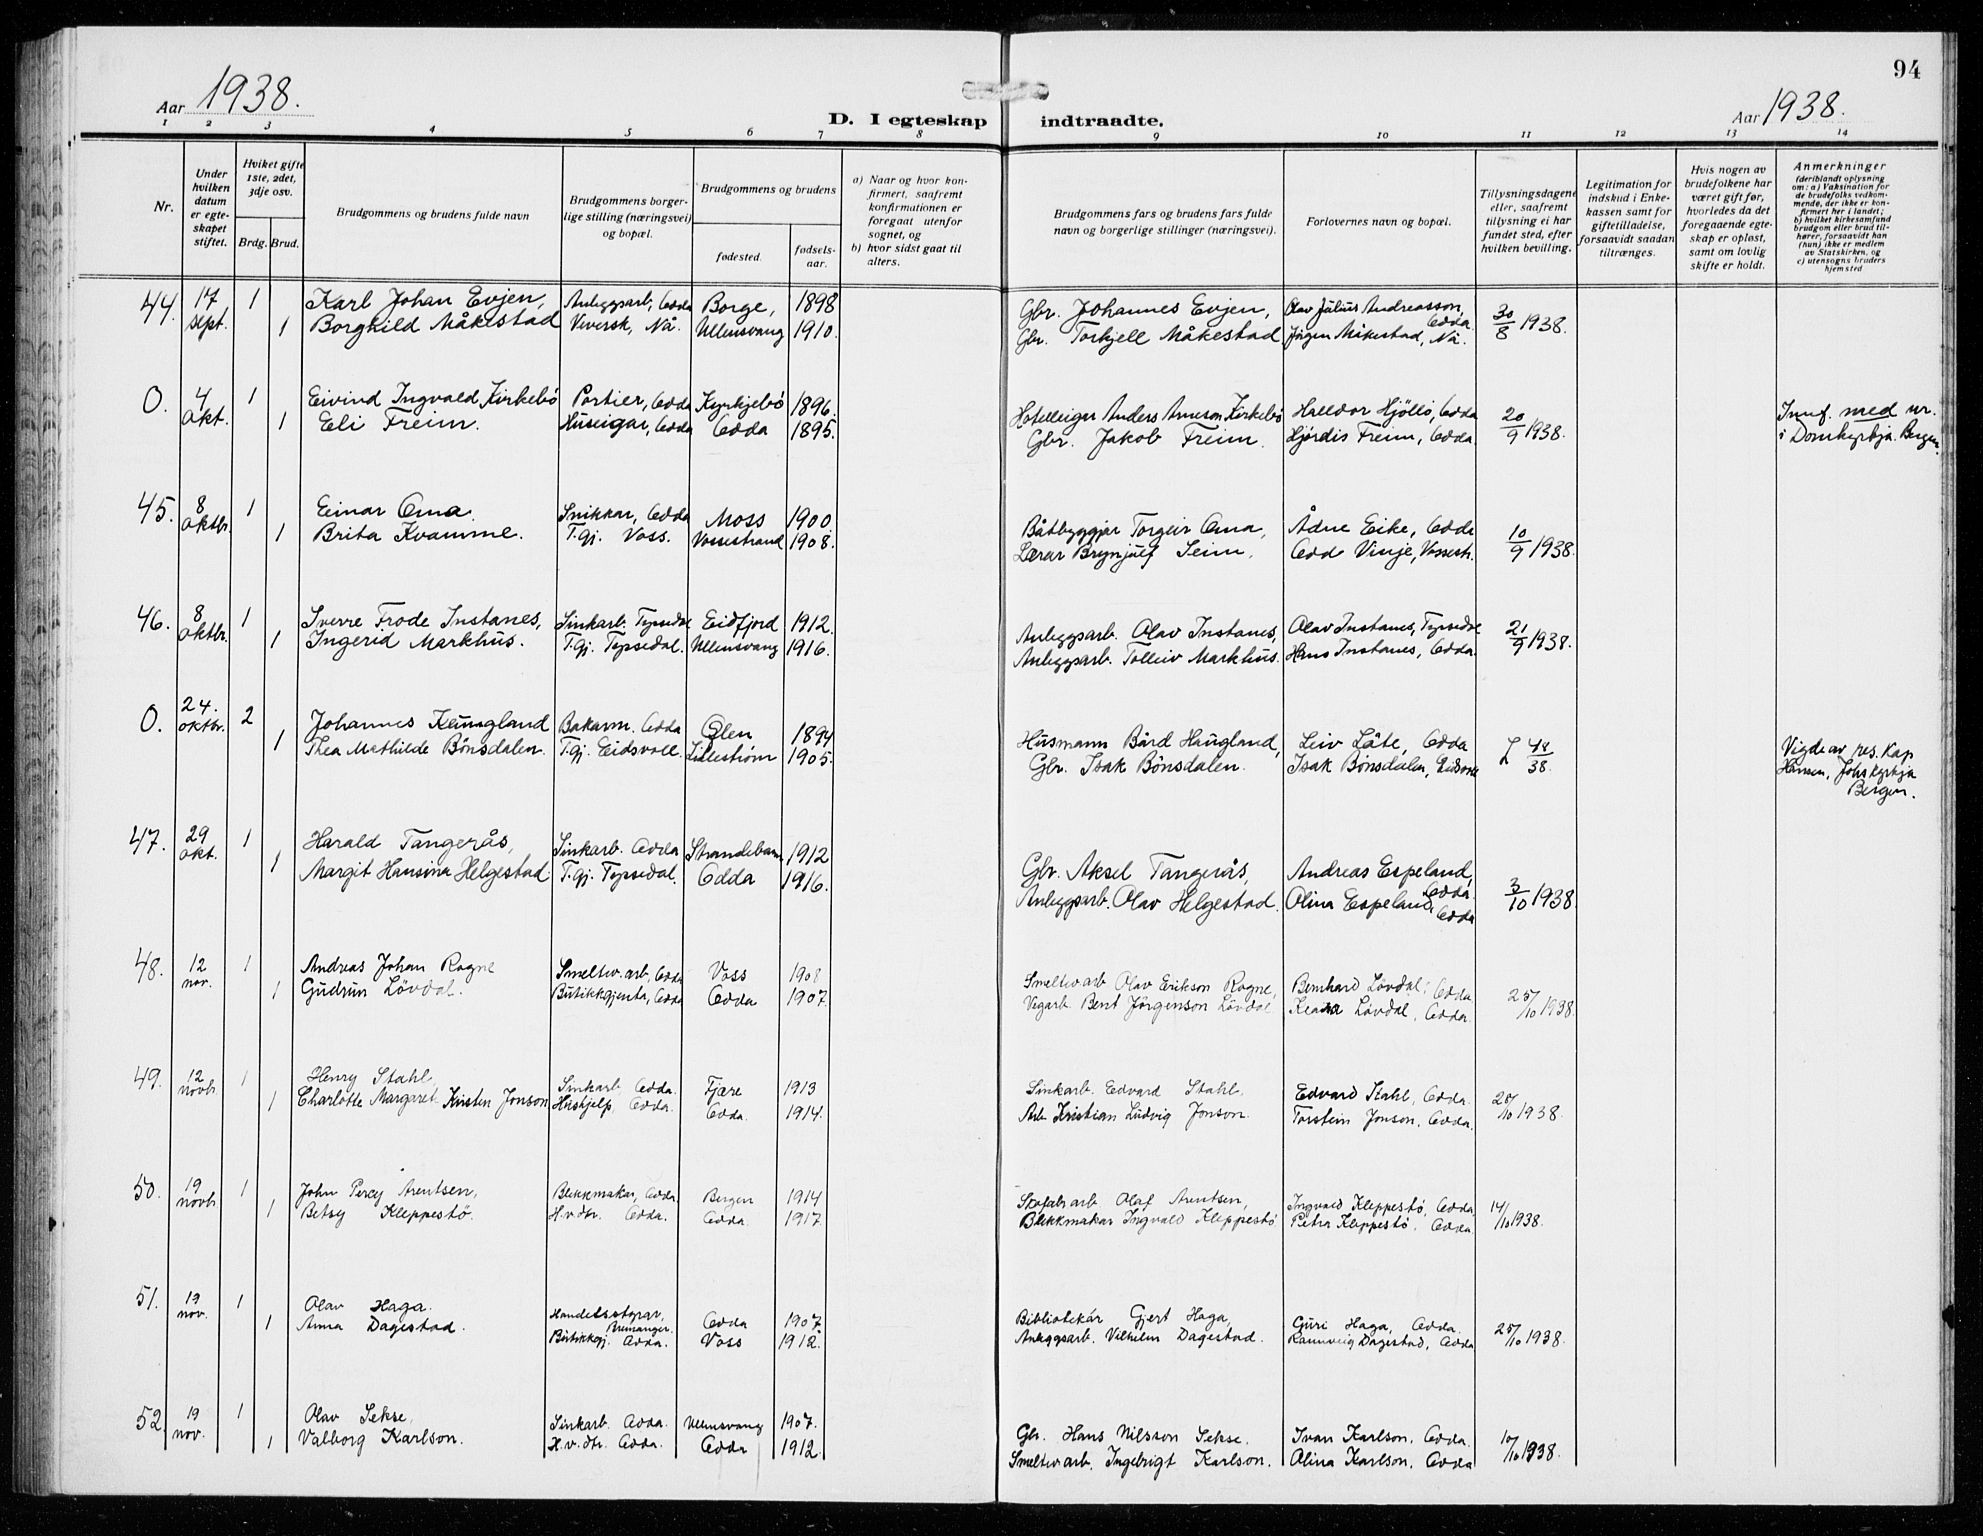 94
Aar 1938.
Aar 1938.
D. I egteskap indtraadte.
1 2 3 4 5 6 7 8 9 10 11 12 13 14
Nr.
Under hvilken datum er egteskapet stiftet.
Hviket gifte 1ste, 2det, 3dje osv.
Brdg. Brud.
Brudgommens og brudens fulde navn
Brudgommens borgerlige stilling (næringsvei) og bopæl.
Brudgommens og brudens
fødested.
fødselsaar.
a) Naar og hvor konfirmert, saafremt konfirmationen er foregaat utenfor sognet, og
b) hvor sidst gaat til alters.
Brudgommens fars og brudens fars fulde navn og borgerlige stillinger (næringsvei).
Forlovernes navn og bopæl.
Tillysningsdagene eller, saafremt tillysning ei har fundet sted, efter hvilken bevilling.
Legitimation for indskud i Enkekassen samt for giftetilladelse, forsaavidt saadan tiltrænges.
Hvis nogen av brudefolkene har været gift før, hvorledes da det foregaaende egteskap er opløst, samt om lovlig skifte er holdt.
Anmerkninger (deriblandt oplysning om: a) Vaksination for de brudefolks vedkommende, der ikke er konfirmert her i landet; b) hvilket kirkesamfund brudgom eller brud tilhører, forsaavidt han (hun) ikke er medlem av Statskirken, og c) utensogns bruders hjemsted
44. 17 sept. 1 Karl Johan Evjen, Anleggsarb, Odda Borge, 1898 Gbr. Johannes Evjen, Olav Julius Andreasson, Odda 30/8 1938.
1 Borghild Måkestad Ullensvang 1910. Gbr. Torkjell Måkestad Jörgen Måkestad, Nå.
O. 4 okt. 1 Eivind Ingvald Kirkebö Portier, Odda Kyrkjebö 1896. Hotelleigar Anders Arneson Kirkebö Halldor Hjöllo, Odda 20/9 1938. Innf. med nr.
1 Eli Freim. Huseigar, Odda Odda 1895. Gbr. Jakob Freim. Hjördis Freim, Odda. i Domkyrkja. Bergen.
45. 8 oktbr. 1 Einar Oma. Snikkar, Odda Moss 1900. Båtbyggjar Torgeir Oma, Ådne Eike, Odda 10/9 1938.
1 Brita Kvamme. T.gj. Voss. Vossestrand 1908. Lærar Brynjulf Seim. Odd Vinje, Vossestr.
46. 8 oktbr. 1 Sverre Frode Instanes, Sinkarb. Tyssedal Eidfjord 1912. Anleggsarb. Olav Instanes, Olav Instanes, Tyssedal 21/9 1938.
1 Ingerid Markhus. T.gj. Tyssedal. Ullensvang 1916. Anleggsarb. Tolleiv Markhus. Hans Instanes, Odda.
O. 24. oktbr. 2 Johannes Haugland Bakarm. Odda Ølen 1894 Husmann Bård Haugland, Leiv Låte, Odda L 48/38. Vigde av res. kap.
1 Thea Mathilde Bönsdalen. T.gj. Eidsvoll Lillestrøm 1905. Gbr. Isak Bönsdalen. Isak Bönsdalen, Hansen, Johs kyrkja Bergen.
47. 29 okt. 1 Harald Tangerås, Sinkarb. Odda Strandebarm 1912 Gbr. Aksel Tangerås, Andreas Espeland, Odda. 3/10 1938.
1 Margit Hansina Helgestad. T.gj. Tyssedal. Odda 1916. Anleggsarb. Olav Helgestad. Olina Espeland, Odda
48. 12 nov. 1 Andreas Johan Rogne Smeltv. arb, Odda Voss 1908 Smeltv arb Olav Erikson Rogne, Bernhard Lövdal, Odda 25/10 1938.
1 Gudrun Lövdal. Butikkgjenta, Odda Odda 1907 Vegarb. Bent Jörgenson Lövdal Lövdal, Odda.
49. 12 novb. 1 Henry Stahl, Sinkarb. Odda. Fjære 1913 Sinkarb. Edvard Stahl. Edvard Stahl, Odda. 25/10 1938.
1 Charlotte Margaret Kirsten Jonson Hushjelp, Odda. Odda. 1914. Arb Kristian Ludvig Jonson. Torstein Jonson, Odda.
50. 19 novb. 1 John Percy Arentsen, Blekkmakar, Odda. Bergen 1914 Skofabr arb Olaf Arentsen, Ingvald Kleppestö, Odda 14/10 1938.
1 Betsy Kleppestö. H.v.dtr. Odda. Odda. 1917. Blekkmakar Ingvald Kleppestö Petra Kleppestö, Odda
51. 19 nov. 1 Olav Haga. Handelsstyrar, Odda 1907. Bibliotekár Gjert Haga, Guri Haga, Odda. 25/10 1938.
1 Anna Dagestad. Butikkgj. Odda. Voss 1912. Anleggsarb. Vilhelm Dagestad. Rannveig Dagestad, Odda
52. 19 nov. 1 Olav Sekse, Sinkarb. Odda. Ullensvang 1907. Gbr. Hans Nilsson Sekse. Ivan Karlson, Odda. 10/10 1938.
1 Valborg Karlson. H.v.dtr. Odda. Odda 1912. Smeltv arb. Ingebrigt Karlson. Olina Karlson, Odda